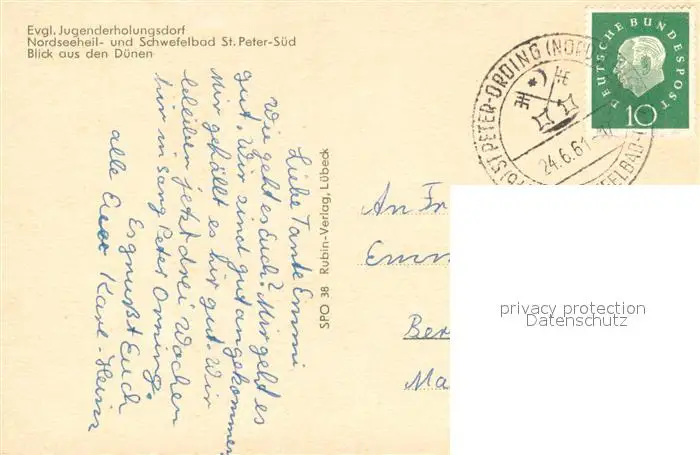 Evgl. Jugenderholungsdorf
Nordseeheil- und Schwefelbad St. Peter-Süd
Blick aus den Dünen
Liebe Tante Emmi
Wie geht es Euch? Mir geht es
gut. Wir sind gut angekommen
Mir gefällt es hir gut. Wir
bleiben jetzt drei Wochen
hir in Sang Peter Orning.
Es grüßt Euch
alle Euer Karl-Heinz
SPO 38 Rubin-Verlag, Lübeck
ST. PETER-ORDING (NORD
24.6.61
ELBAD
DEUTSCHE BUNDESPOST
10
An Fr
Emm
Ber
Ma
privacy protection
Datenschutz